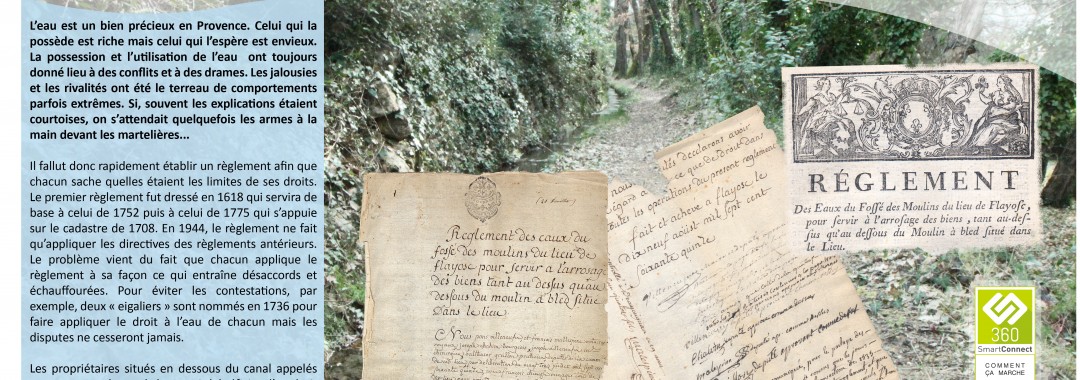 L'eau est un bien précieux en Provence. Celui qui la
possède est riche mais celui qui l'espère est envieux.
La possession et l'utilisation de l'eau ont toujours
donné lieu à des conflits et à des drames. Les jalousies
et les rivalités ont été le terreau de comportements
parfois extrêmes. Si, souvent les explications étaient
courtoises, on s'attendait quelquefois les armes à la
main devant les martelières...
Il fallut donc rapidement établir un règlement afin que
chacun sache quelles étaient les limites de ses droits.
Le premier règlement fut dressé en 1618 qui servira de
base à celui de 1752 puis à celui de 1775 qui s'appuie
sur le cadastre de 1708. En 1944, le règlement ne fait
qu'appliquer les directives des règlements antérieurs.
Le problème vient du fait que chacun applique le
règlement à sa façon ce qui entraîne désaccords et
échauffourées. Pour éviter les contestations, par
exemple, deux « eigaliers » sont nommés en 1736 pour
faire appliquer le droit à l'eau de chacun mais les
disputes ne cesseront jamais.
Les propriétaires situés en dessous du canal appelés
Reglement des eaux du
fossé des moulins du lieu de
flayose pour servir a larrosag
des biens tant au dessus quau
dessous du moulin a bled situé
dans le lieu
des declarons avoir
ce que de droit dans
toutes les operations du present reglement
fait et achevé a flayose le
dixneuf aoust mil sept cent
soixante quinze
RÉGLEMENT
Des Eaux du Fossé des Moulins du lieu de Flayosc,
pour servir à l'arrosage des biens, tant au-des-
sus qu'au dessous du Moulin à bled situé dans
le Lieu.
360
SmartConnect
COMMENT
ÇA MARCHE